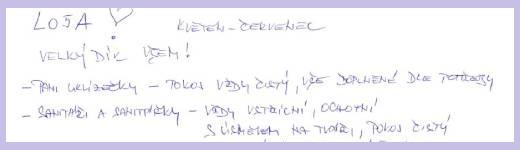 LOJA!
KVĚTEN - ČERVENEC
VELKÝ DÍK VŠEM!
- PANÍ UKLÍZEČKY - POKOJ VŽDY ČISTÝ, VŠE DOPLNĚNÉ DLE POTŘEBY
- SANITÁŘI A SANITÁŘKY - VŽDY VSTŘÍCNÍ, OCHOTNÍ
S ÚSMĚVEM NA TVÁŘI, POKOJ ČISTÝ